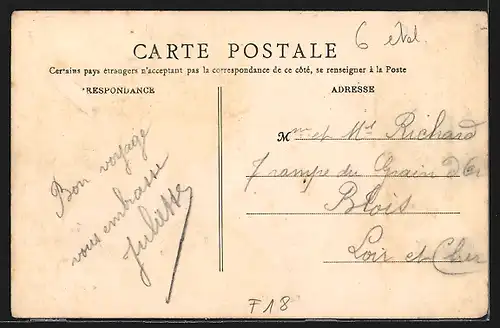 6
CARTE POSTALE
Certains pays étrangers n'acceptant pas la correspondance de ce côté, se renseigner à la Poste
RESPONDANCE
ADRESSE
Bon voyage
vous embrasse
Juliette
Mme et Mr Richard
7 rampe du Grain d'Or
Blois
Loir et Cher
F18